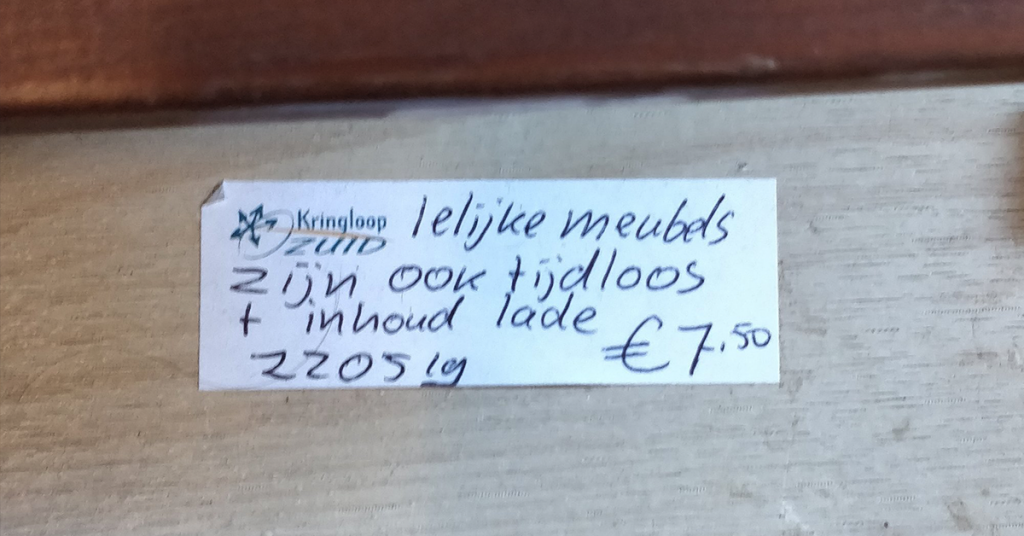 Kringloop lelijke meubels
ZUID
zijn ook tijdloos
+ inhoud lade
2205 lg
€7.50